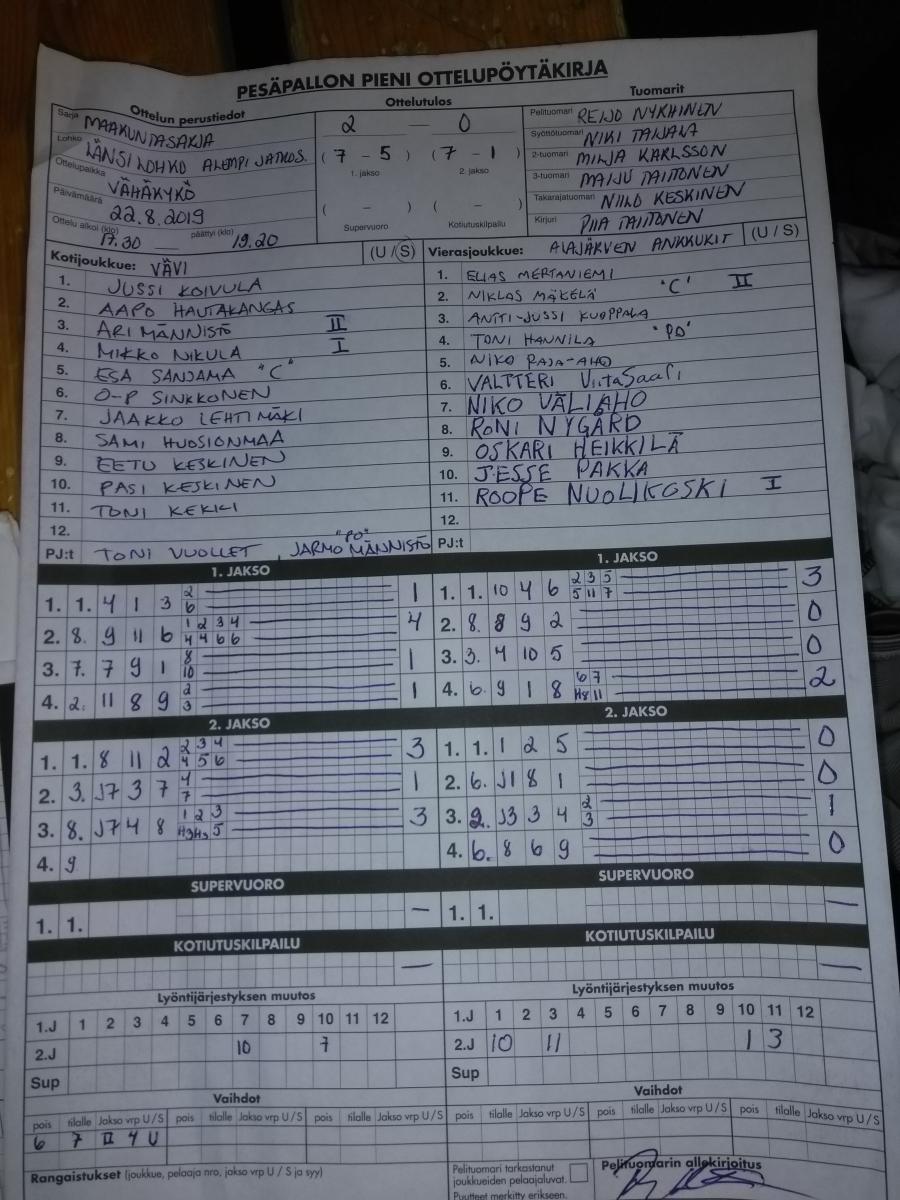 PESÄPALLON PIENI OTTELUPÖYTÄKIRJA
Ottelun perustiedot
Sarja MAAKUNTASARJA
Lohko LÄNSILOHKO ALEMPI JATKOS.
Ottelupaikka VÄHÄKYRÖ
Päivämäärä 22.8.2019
Ottelu alkoi (klo) 17.30 päättyi (klo) 19.20
Ottelutulos
2 — 0
( 7 – 5 ) ( 7 – 1 )
1. jakso 2. jakso
( – ) ( – )
Supervuoro Kotiutuskilpailu
Tuomarit
Pelituomari REIJO NYKÄNEN
Syöttötuomari NIKI TAIJALA
2-tuomari MILJA KARLSSON
3-tuomari MAIJU TAITONEN
Takarajatuomari NIILO KESKINEN
Kirjuri PIIA TAITONEN
Kotijoukkue: VÄVI (U / S)
1. JUSSI KOIVULA
2. AAPO HAUTAKANGAS
3. ARI MÄNNISTÖ II
4. MIKKO NIKULA I
5. ESA SANJAMA "C"
6. O-P SINKKONEN
7. JAAKKO LEHTIMÄKI
8. SAMI HUOSIONMAA
9. EETU KESKINEN
10. PASI KESKINEN
11. TONI KEKKI
12.
PJ:t TONI VUOLLET, JARMO MÄNNISTÖ "PO"
Vierasjoukkue: ALAJÄRVEN ANKKURIT (U / S)
1. ELIAS MERTANIEMI
2. NIKLAS MÄKELÄ "C" II
3. ANTTI-JUSSI KUOPPALA
4. TONI HANNILA "PO"
5. NIKO RAJA-AHO
6. VALTTERI ViitaSaari
7. NIKO VÄLIAHO
8. RONI NYGÅRD
9. OSKARI HEIKKILÄ
10. JESSE PAKKA
11. ROOPE NUOLIKOSKI I
12.
PJ:t
1. JAKSO
1. 1. 4 1 3 2 1
6
2. 8. 9 11 6 1 2 3 4 4
4 4 6 6
3. 7. 7 9 1 8 1
10
4. 2. 11 8 9 2 1
3
1. JAKSO
1. 1. 10 4 6 2 3 5 3
5 11 7
2. 8. 8 9 2 0
3. 3. 4 10 5 0
4. 6. 9 1 8 6 7 2
H8 11
2. JAKSO
1. 1. 8 11 2 2 3 4 3
4 5 6
2. 3. J7 3 7 4 1
7
3. 8. J7 4 8 1 2 3 3
H3 H5 5
4. 9
2. JAKSO
1. 1. 1 2 5 0
2. 6. J1 8 1 0
3. 2. J3 3 4 2 1
3
4. 6. 8 6 9 0
SUPERVUORO
1. 1. –
SUPERVUORO
1. 1. —
KOTIUTUSKILPAILU
—
KOTIUTUSKILPAILU
—
Lyöntijärjestyksen muutos
1.J 1 2 3 4 5 6 7 8 9 10 11 12
2.J 10 7
Sup
Lyöntijärjestyksen muutos
1.J 1 2 3 4 5 6 7 8 9 10 11 12
2.J 10 11 1 3
Sup
Vaihdot
pois tilalle Jakso vrp U / S pois tilalle Jakso vrp U / S pois tilalle Jakso vrp U / S
6 7 II 4 U
Vaihdot
pois tilalle Jakso vrp U / S pois tilalle Jakso vrp U / S pois tilalle Jakso vrp U / S
Rangaistukset (joukkue, pelaaja nro, jakso vrp U / S ja syy)
Pelituomari tarkastanut
joukkueiden pelaajaluvat.
Puutteet merkitty erikseen.
Pelituomarin allekirjoitus